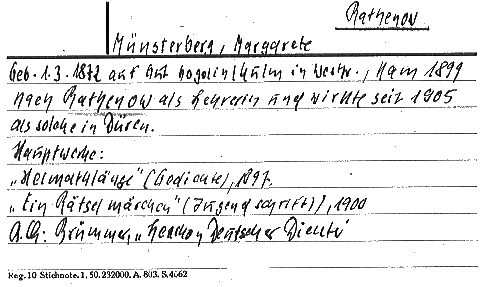 Rathenow
Münsterberg, Margarete
Geb. 1.3.1872 auf Gut in Westpr., kam 1899
nach Rathenow als Lehrerin und wirkte seit 1905
als solche in Düren.
Hauptwerke:
„Heimathklänge" (Gedichte), 1897.
„Ein Rätselmärchen" (Jugendschrift), 1900
Brümmer, „Lexikon Deutscher Dichter
Reg. 10 Stichnote. 1, 50. 232000. A. 803. S. 4062